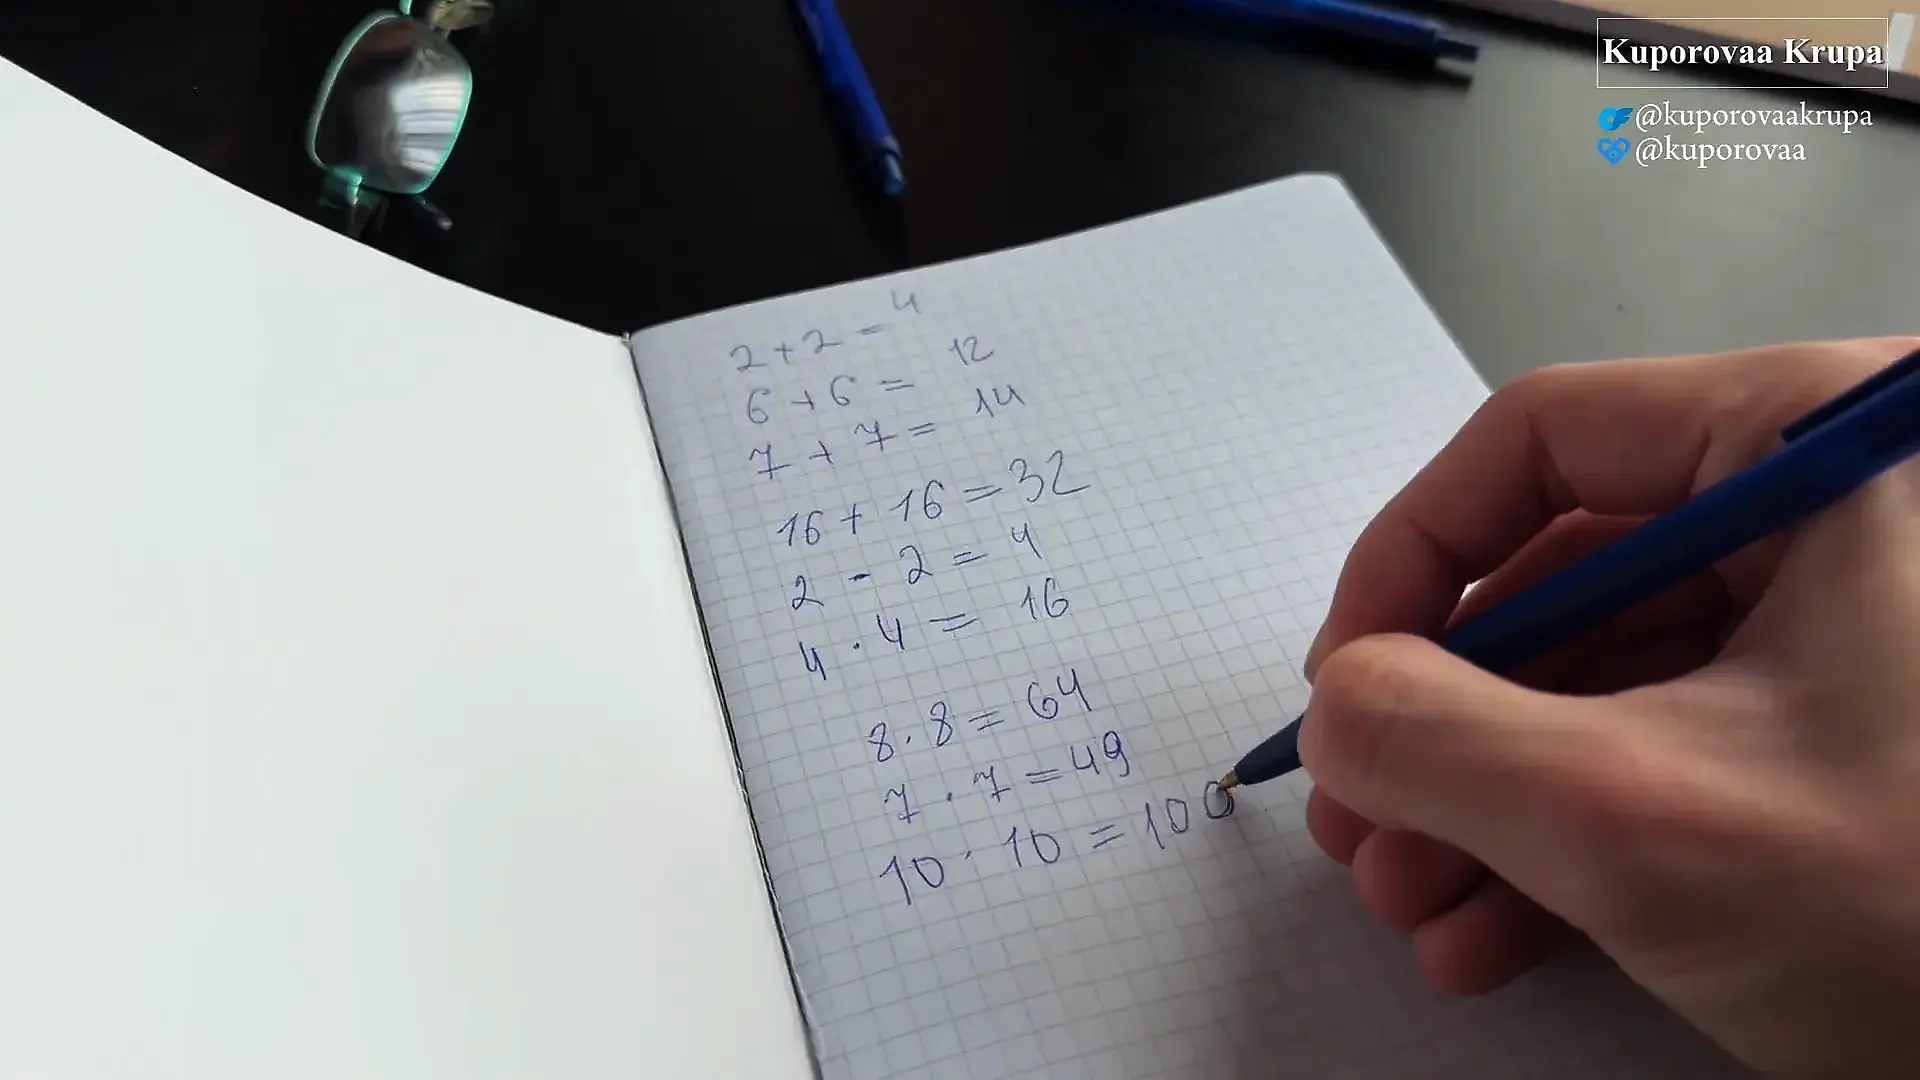 Kuporovaa Krupa
@kuporovaakrupa
@kuporovaa
2 + 2 = 4
6 + 6 = 12
7 + 7 = 14
16 + 16 = 32
2 - 2 = 4
4 · 4 = 16
8 · 8 = 64
7 · 7 = 49
10 · 10 = 100